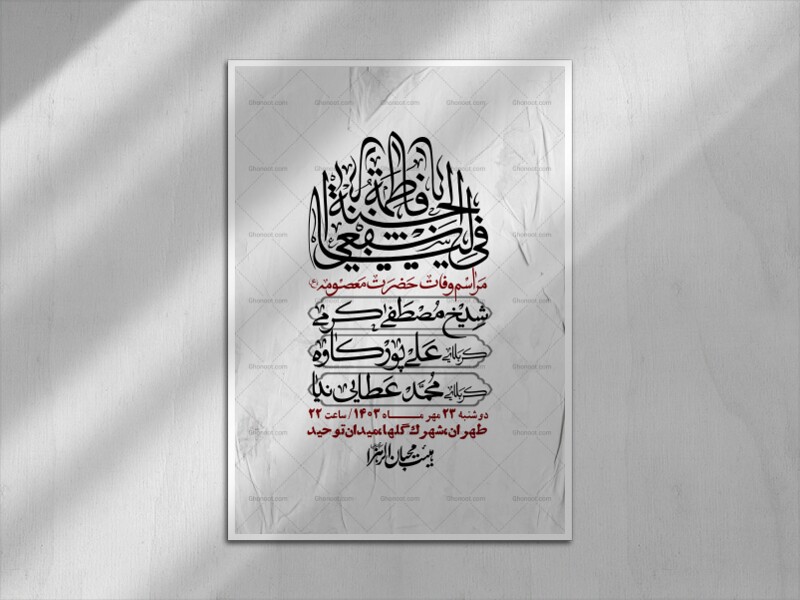 یا فاطمة اشفعی لی فی الجنة
مراسم وفات حضرت معصومه (س)
شیخ مصطفی کرمی
کربلایی علی پورکاوه
کربلایی محمد عطایی نیا
دوشنبه ۲۳ مهر ماه ۱۴۰۳ / ساعت ۲۲
طهران، شهرک گلها، میدان توحید
هیئت محبان الزهرا
Ghonoot.com